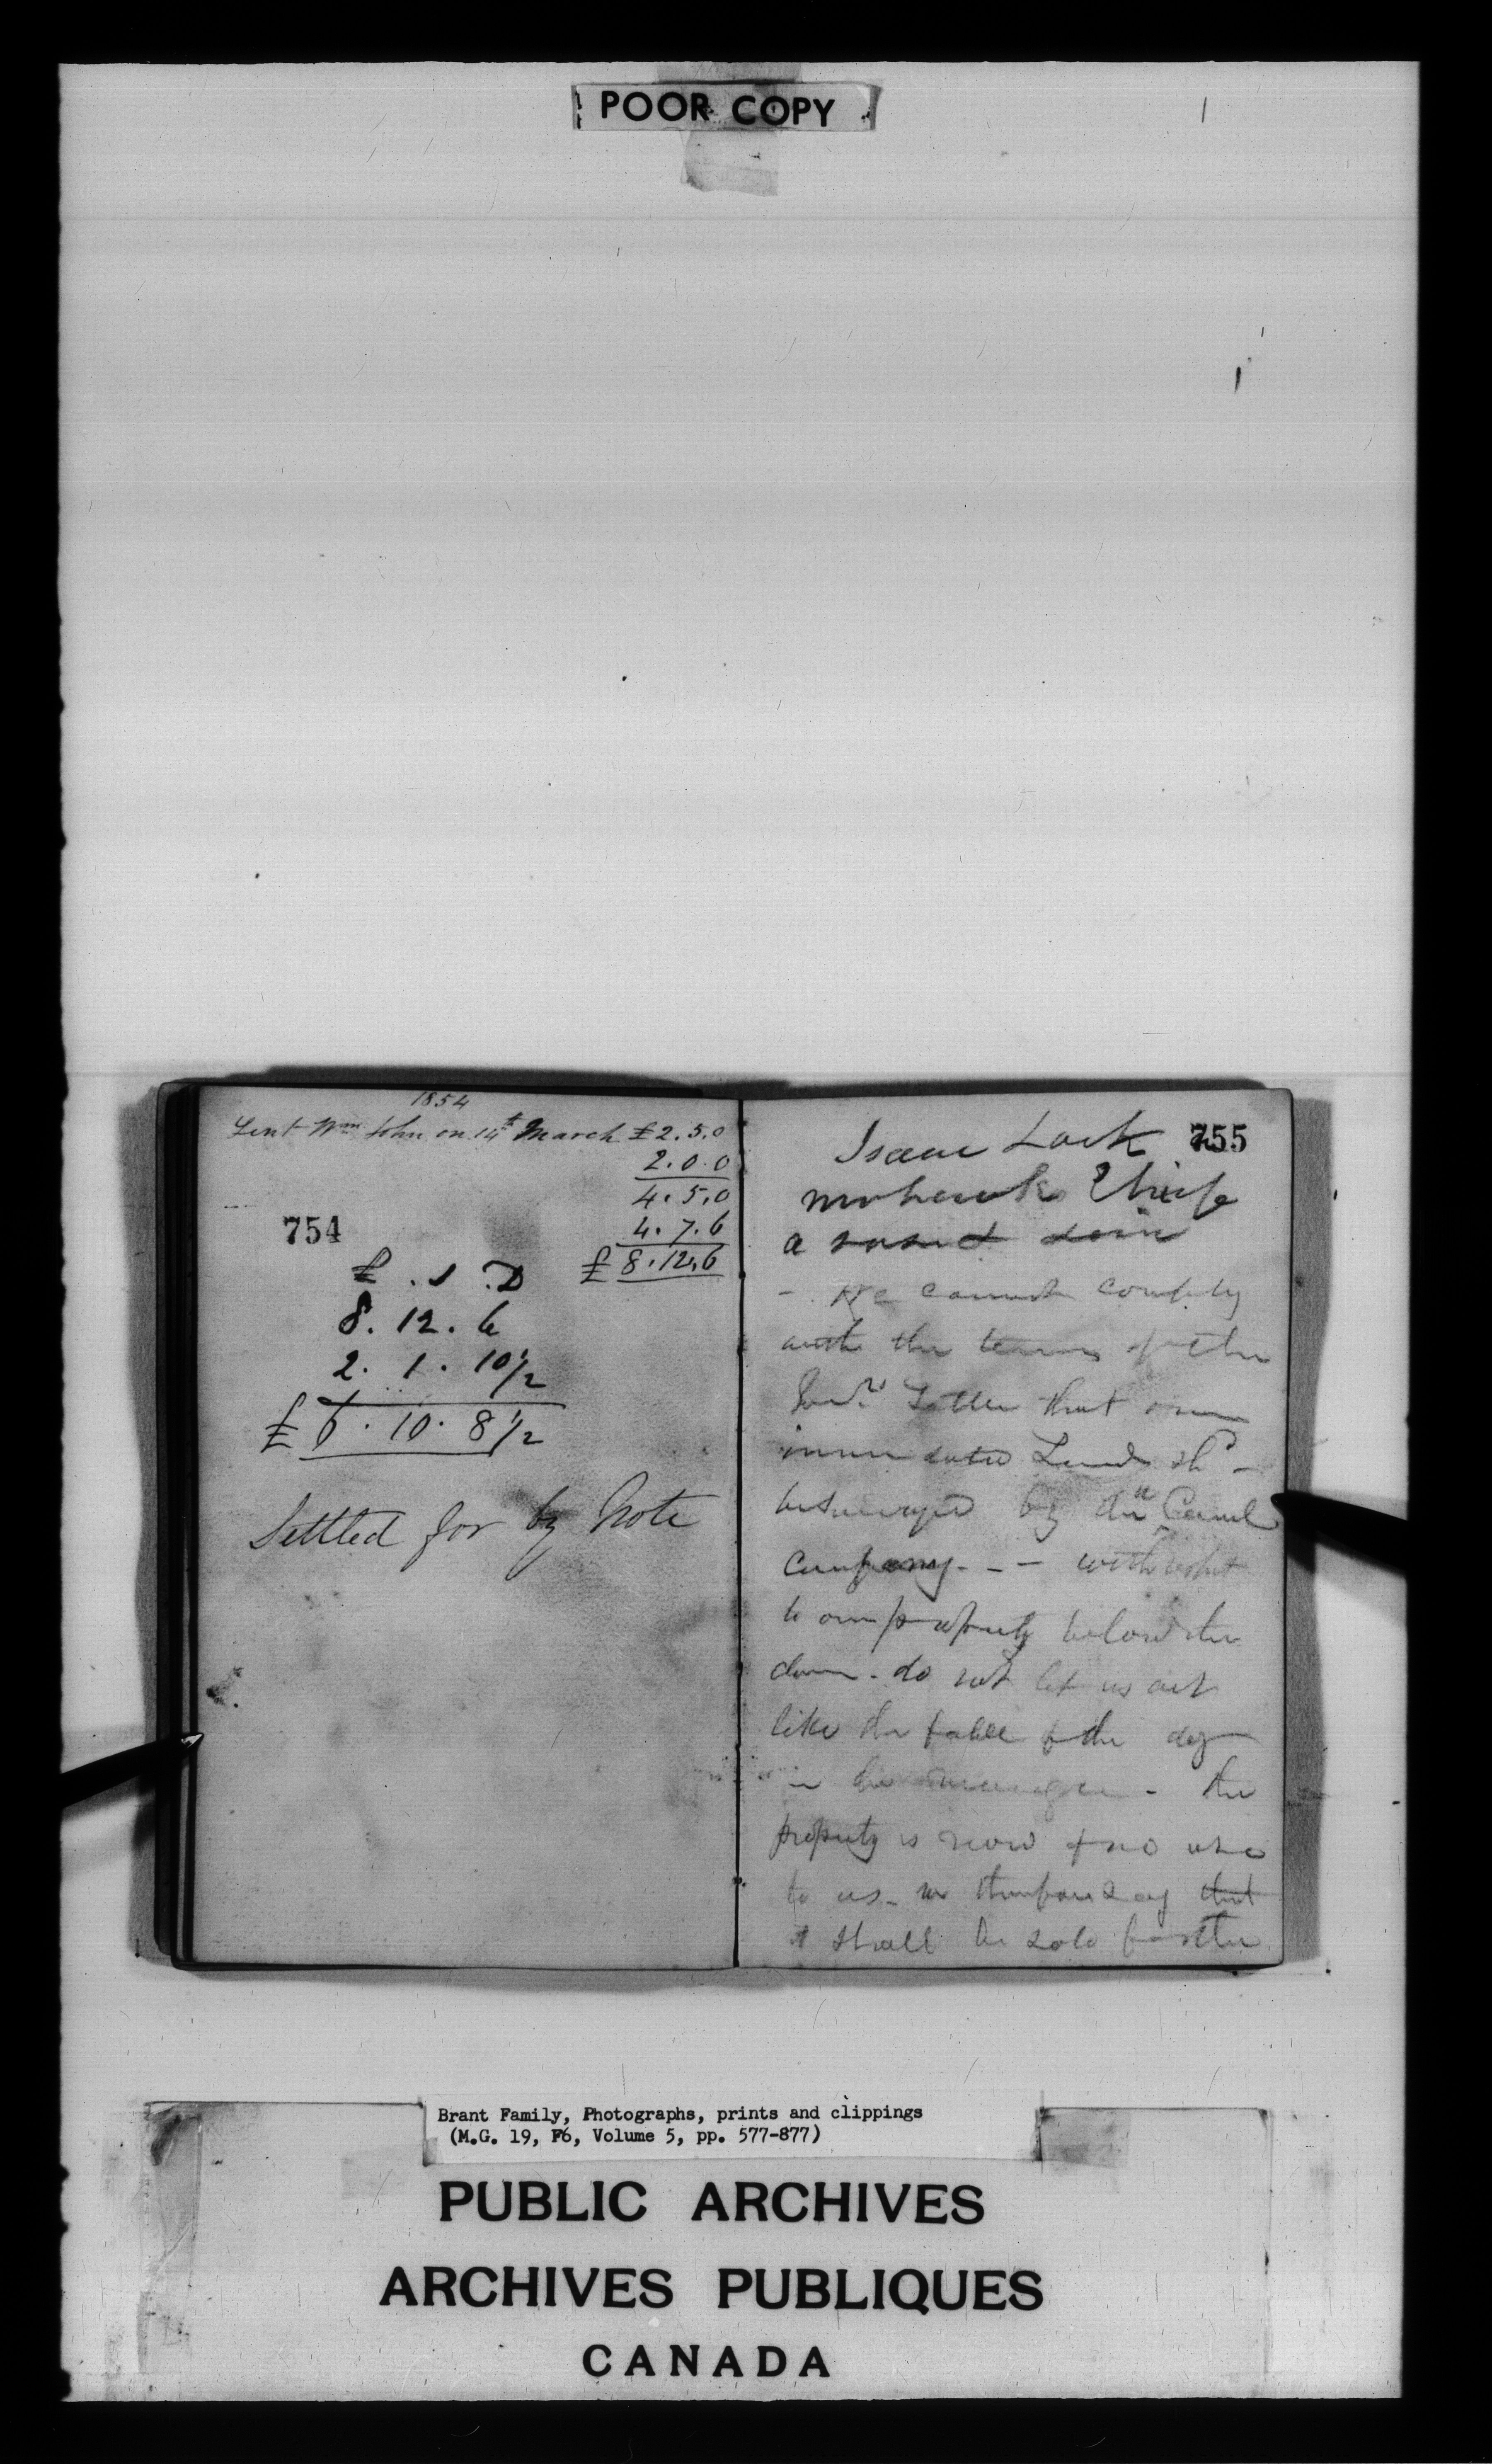 POOR COPY
1854
Lent Wm John on 14th March £2.5.0
2.0.0
4.5.0
4.7.6
£8.12.6
754
£ . S . D
8. 12. 6
2. 1. 10½
£ 6. 10. 8½
Settled for by Note
755
Isaac Lock
Mohawk Chief
a
- We cannot comply
with the terms of the
Govrs Letter that our
Lands shd -
be surveyed by the Canal
Company - - - with respect
to our property below the
dam - do not let us act
like the fable of the dog
in the manger - the
property is now of no use
to us - we therefore say that
it shall be sold for the
Brant Family, Photographs, prints and clippings
(M.G. 19, F6, Volume 5, pp. 577-877)
PUBLIC ARCHIVES
ARCHIVES PUBLIQUES
CANADA